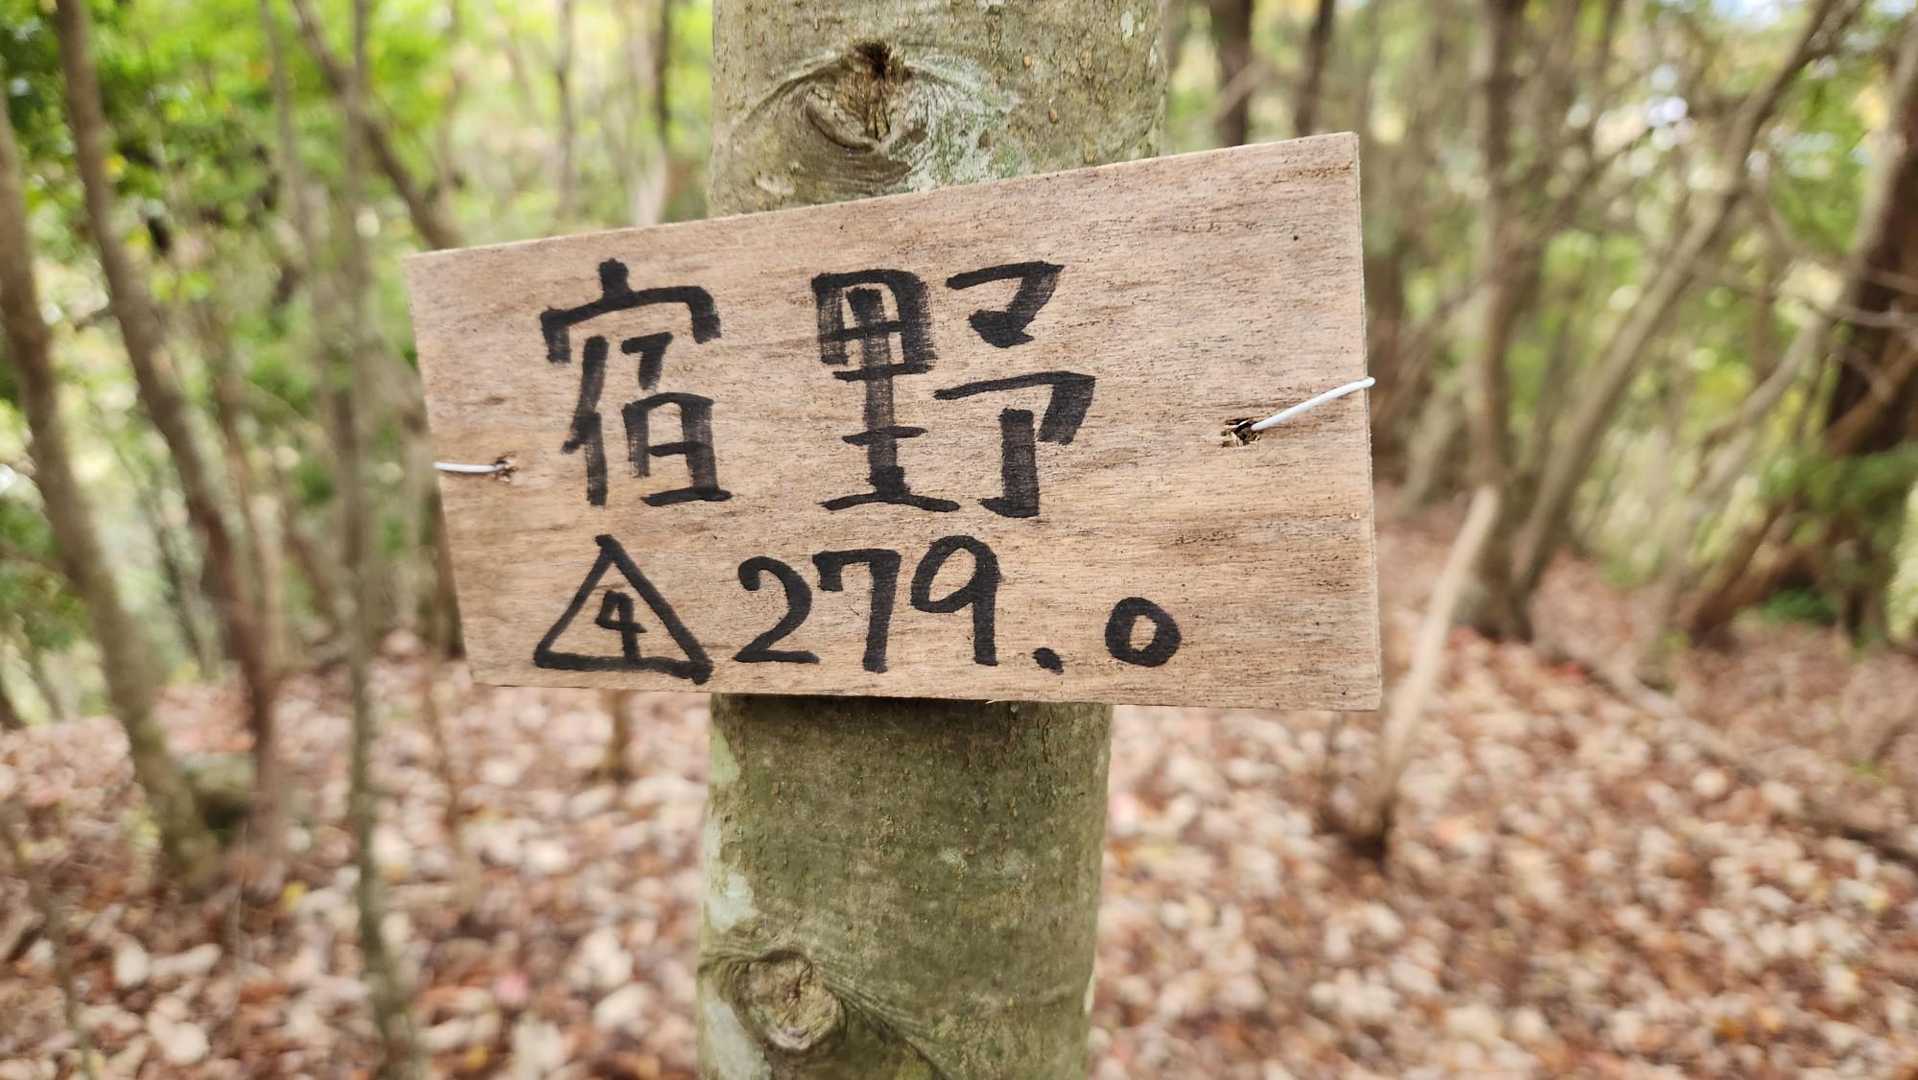 宿野
△4 279.0